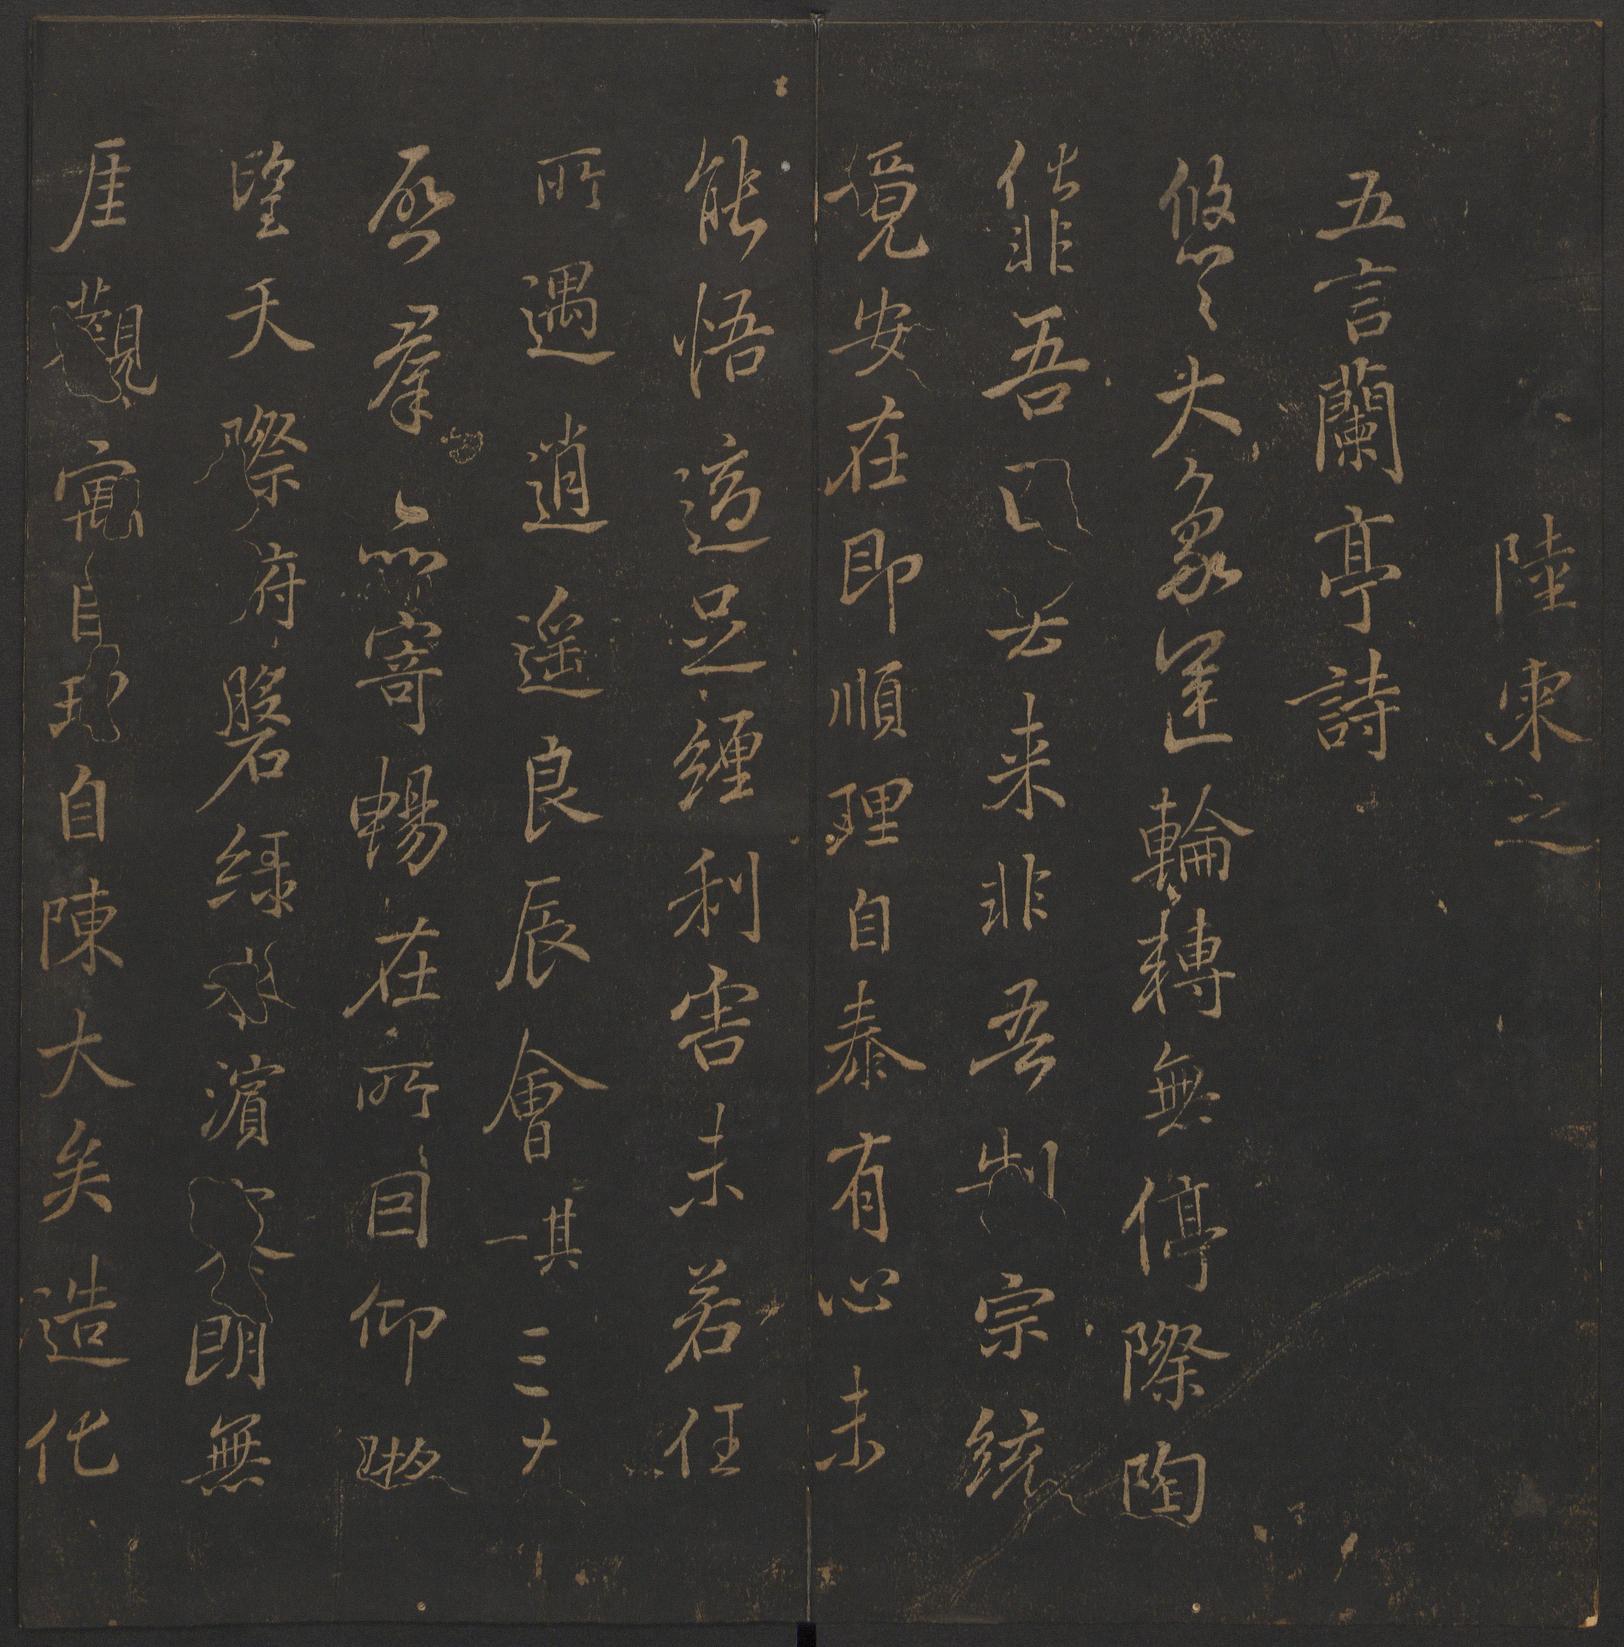 陸柬之
五言蘭亭詩
悠々大象運輪轉無停際陶
化非吾因去来非吾制宗統
竟安在即順理自泰有心未
能悟適足纏利害未若任
所遇逍遥良辰會其一三春
啓羣品寄暢在所因仰眺
望天際府磐绿水濱寥朗無
厓觀寓目理自陳大矣造化